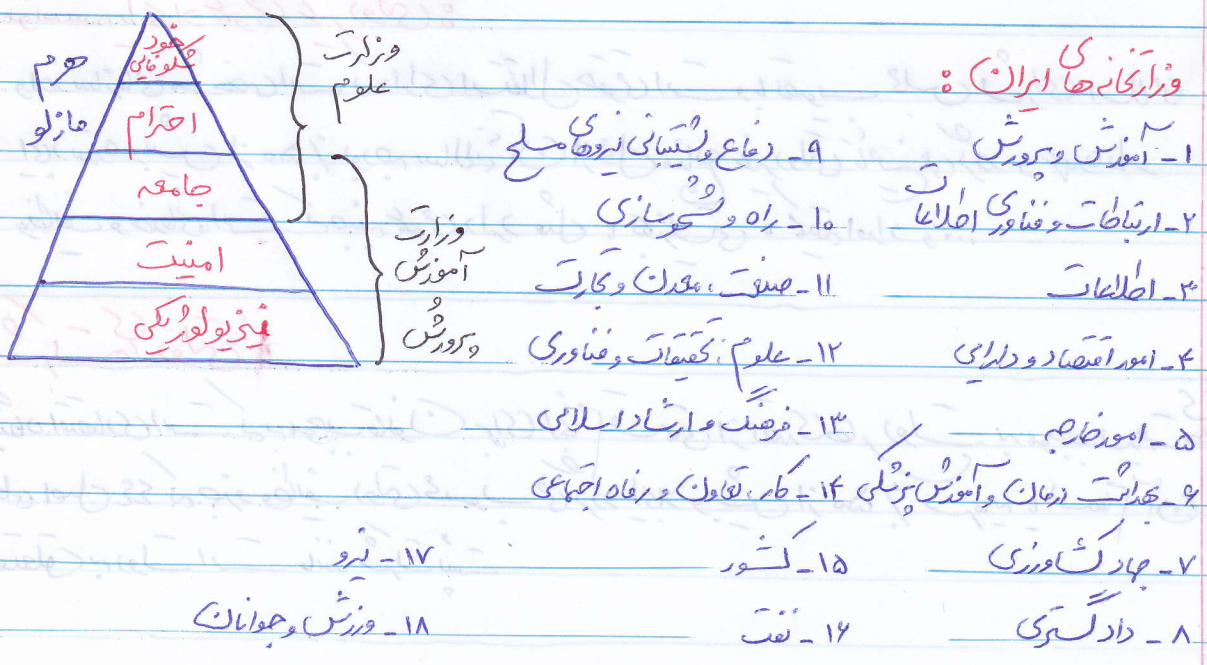 وزارتخانه‌های ایران :
۱- آموزش و پرورش
۲- ارتباطات و فناوری اطلاعات
۳- اطلاعات
۴- امور اقتصاد و دارایی
۵- امور خارجه
۶- بهداشت درمان و آموزش پزشکی
۷- جهاد کشاورزی
۸- دادگستری
۹- دفاع و پشتیبانی نیروهای مسلح
۱۰- راه و شهرسازی
۱۱- صنعت، معدن و تجارت
۱۲- علوم، تحقیقات و فناوری
۱۳- فرهنگ و ارشاد اسلامی
۱۴- کار، تعاون و رفاه اجتماعی
۱۵- کشور
۱۶- نفت
۱۷- نیرو
۱۸- ورزش و جوانان
وزارت
علوم
وزارت
آموزش
پرورش
هرم
مازلو
خود
شکوفایی
احترام
جامعه
امنیت
فیزیولوژیکی